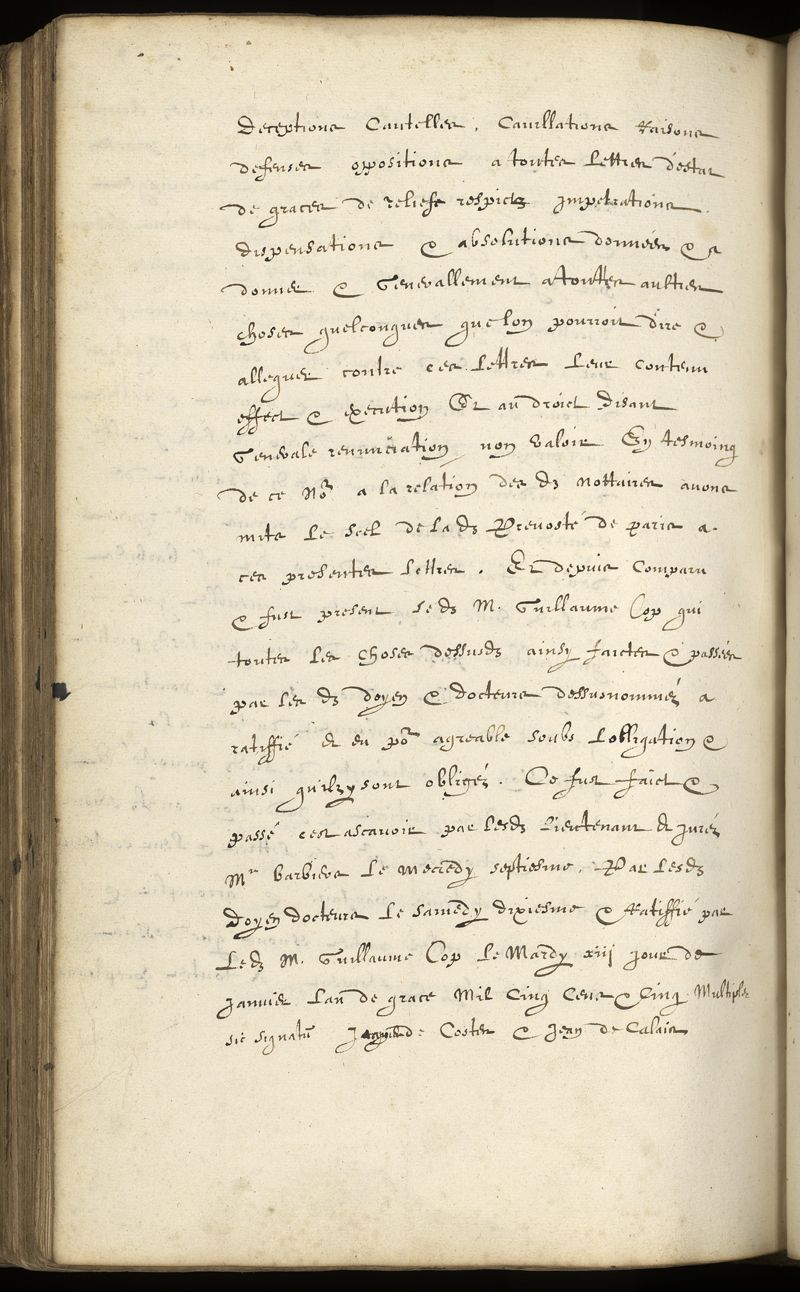 deceptions Cautelles, Cavillations Raisons
defenses oppositions a toutes lettres destat
de graces de reliefs respictz Impetrations.
dispensations & absolutions données & a
donner & Generallement a touttes aultres
choses quelconques que lon pourroit dire &
alleguer contre ces lettres leur contenu
effect & execution Et au droict disant
Generale renunciation non valoir En tesmoing
de ce No{us} a la relation des d{its} Nottaires avons
mits le scel de lad. Prevosté de paris a
ces presentes lettres. Et depuis Comparu
& fust present led. M. Guillaume Cop qui
toutes les choses dessusd. ainsy faictes & passées
par les d. doyen & docteurs dessusnommez a
ratiffié et eu po{ur} agreable soubs lobligation &
ainsi quilzy sont obligéz. Ce fust faict &
passé cest ascavoir par lesd. Lieutenant et juréz
M{rs} barbiers le mecredy septiesme. Par lesd.
doyen docteurs le samedy dixiesme & Ratiffié par
led. M. Guillaume Cop le Mardy xiij jour de
Janvier lan de grace Mil Cinq Cens & Cinq Multiples
sic signatu de Coster & Jean de Calais